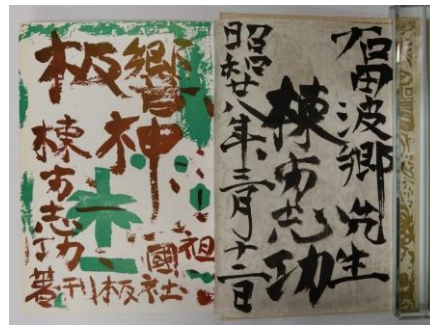 板響神
棟方志功著
祖國社板刊
石田波郷先生
棟方志功
昭和廿八年三月十二日